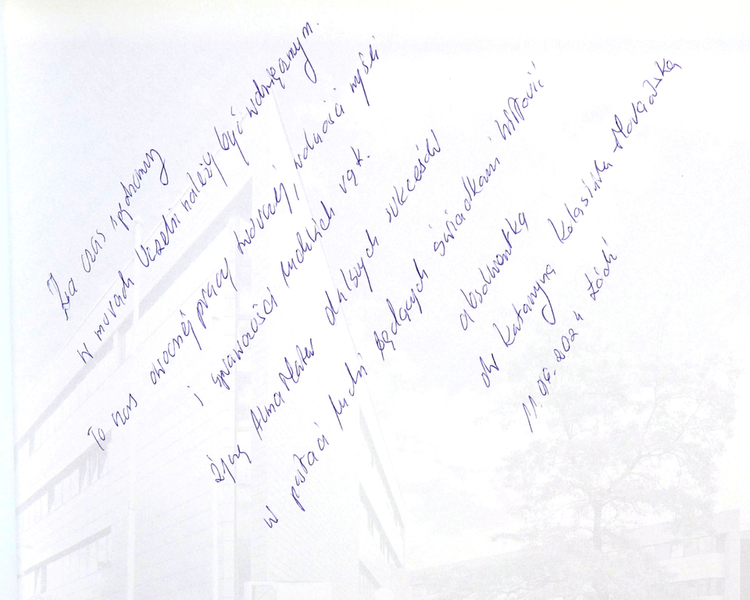 Za czas spędzony
w murach Uczelni należy być wdzięcznym.
To czas owocnej pracy twórczej, wolności myśli
i sprawności ludzkich rąk.
Życzę Alma Mater dalszych sukcesów
w postaci ludzi będących świadkami historii
absolwentka
dr Katarzyna Kolasińska Morawska
11.06.2024 Łódź